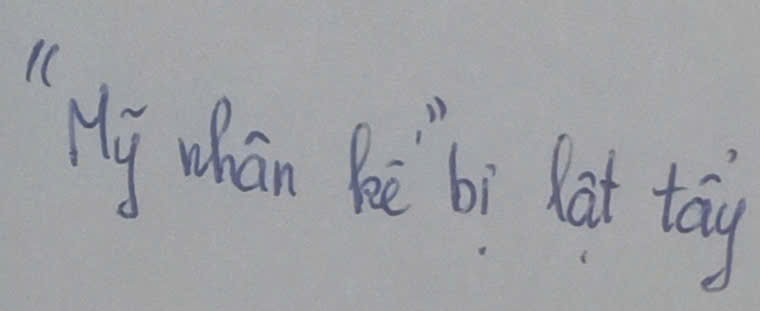 "Mỹ nhân kế" bị lật tẩy